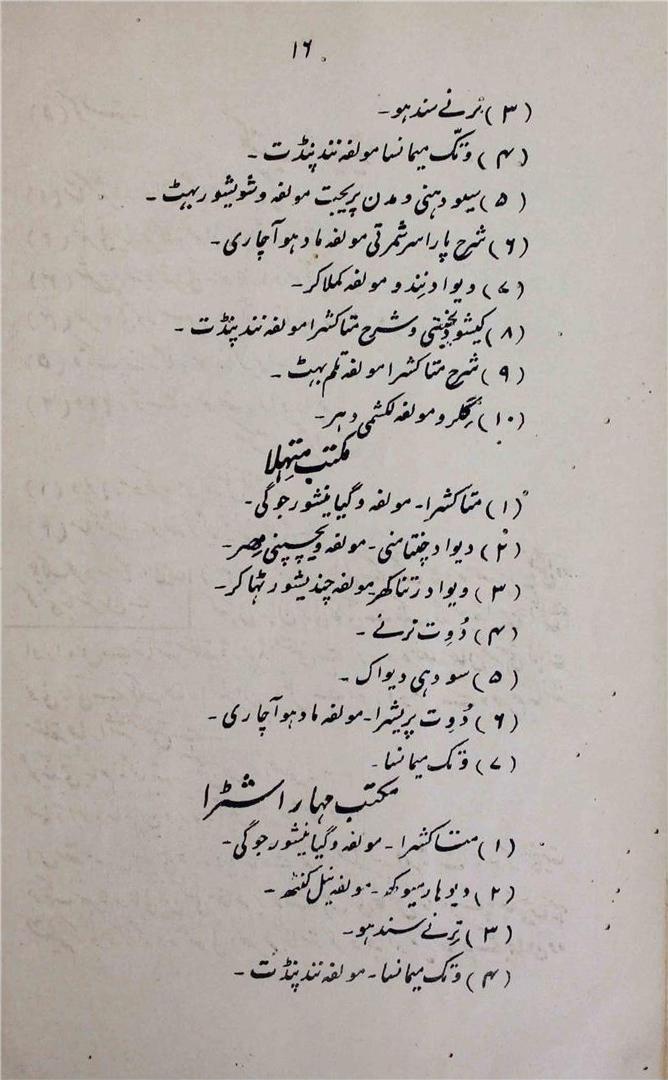 ۱۶
(۳) نرنے سندہو۔
(۴) دتک میمانسا مولفہ نند پنڈت۔
(۵) سبودہنی و مدن پریجیت مولفہ وشویشور بہٹ۔
(۶) شرح پاراسر شمرتی مولفہ مادہو آچاری۔
(۷) دیوادنندو مولفہ کملاکر۔
(۸) کیشو ویجینتی و شرح متاکشرا مولفہ نند پنڈت۔
(۹) شرح متاکشرا مولفہ بہٹ۔
(۱۰) مولفہ لکشمی دہر۔
مکتب متہلا
(۱) متاکشرا۔ مولفہ وگیانیشور جوگی۔
(۲) دیواد چنتامنی۔ مولفہ ویچسپتی مصر۔
(۳) ویواد رتناکھر مولفہ چندیشور ٹہاکر۔
(۴) دُوِت نرنے۔
(۵) سودہی دیواک۔
(۶) دُوِت پریشرا۔ مولفہ مادہو آچاری۔
(۷) دتک میمانسا۔
مکتب مہاراشٹرا
(۱) متاکشرا۔ مولفہ وگیانیشور جوگی۔
(۲) دیوہار میوکھ۔ مولفہ نیل کنٹھ۔
(۳) نِرنے سندہو۔
(۴) دتک میمانسا۔ مولفہ نند پنڈت۔